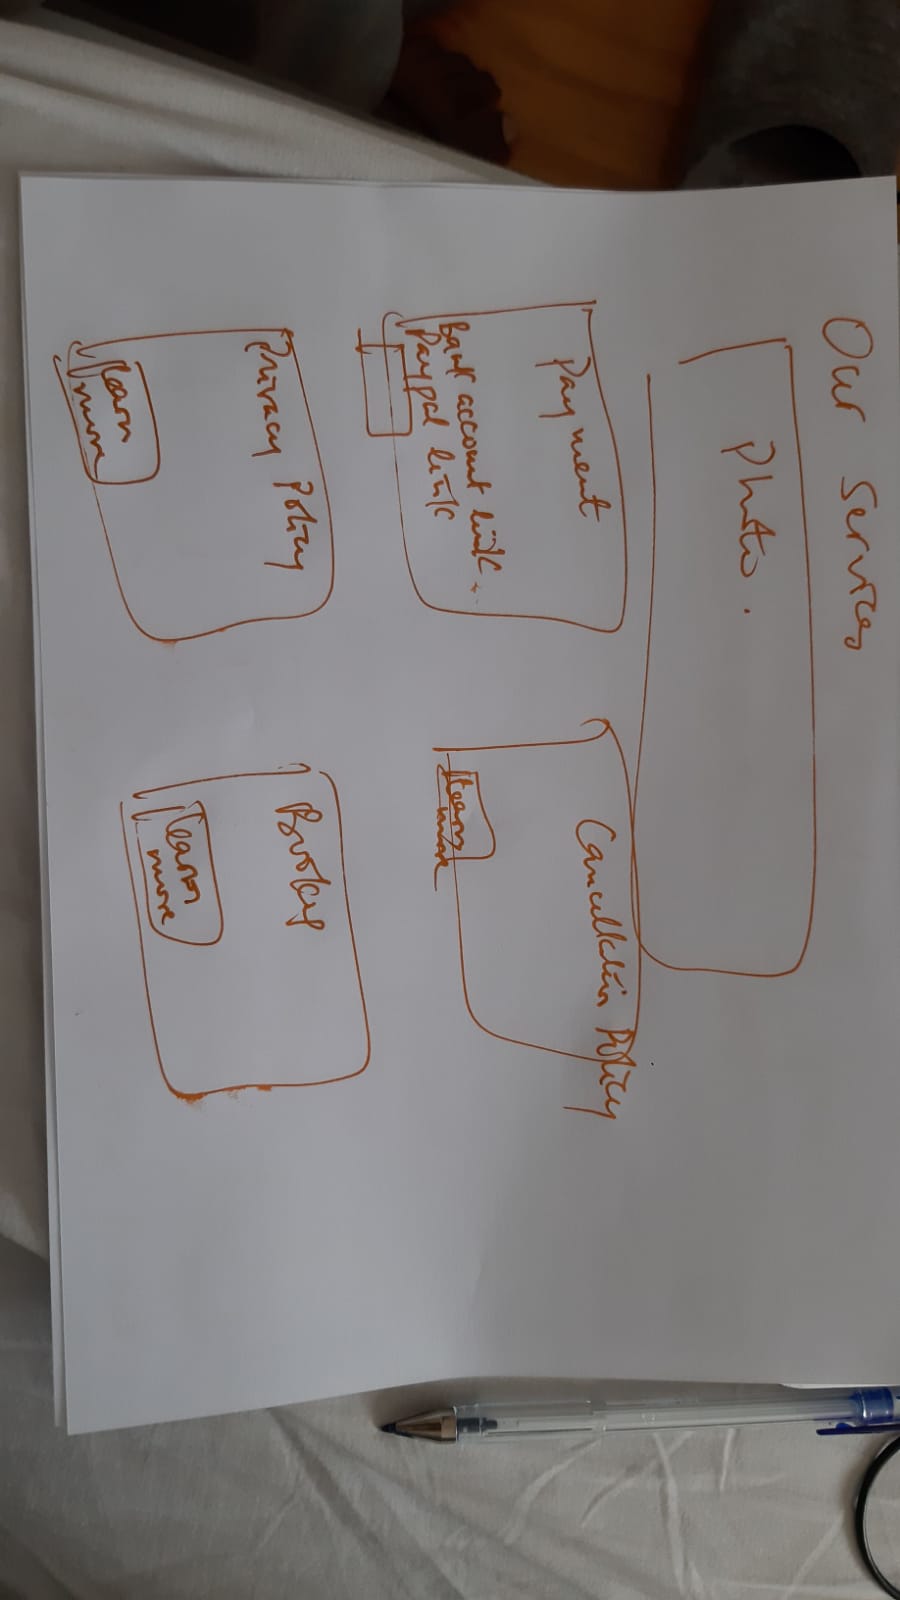 Our Services
Photo.
Payment
Bank account link
Paypal link
Cancellation Policy
learn
more
Privacy Policy
learn
more
learn
more